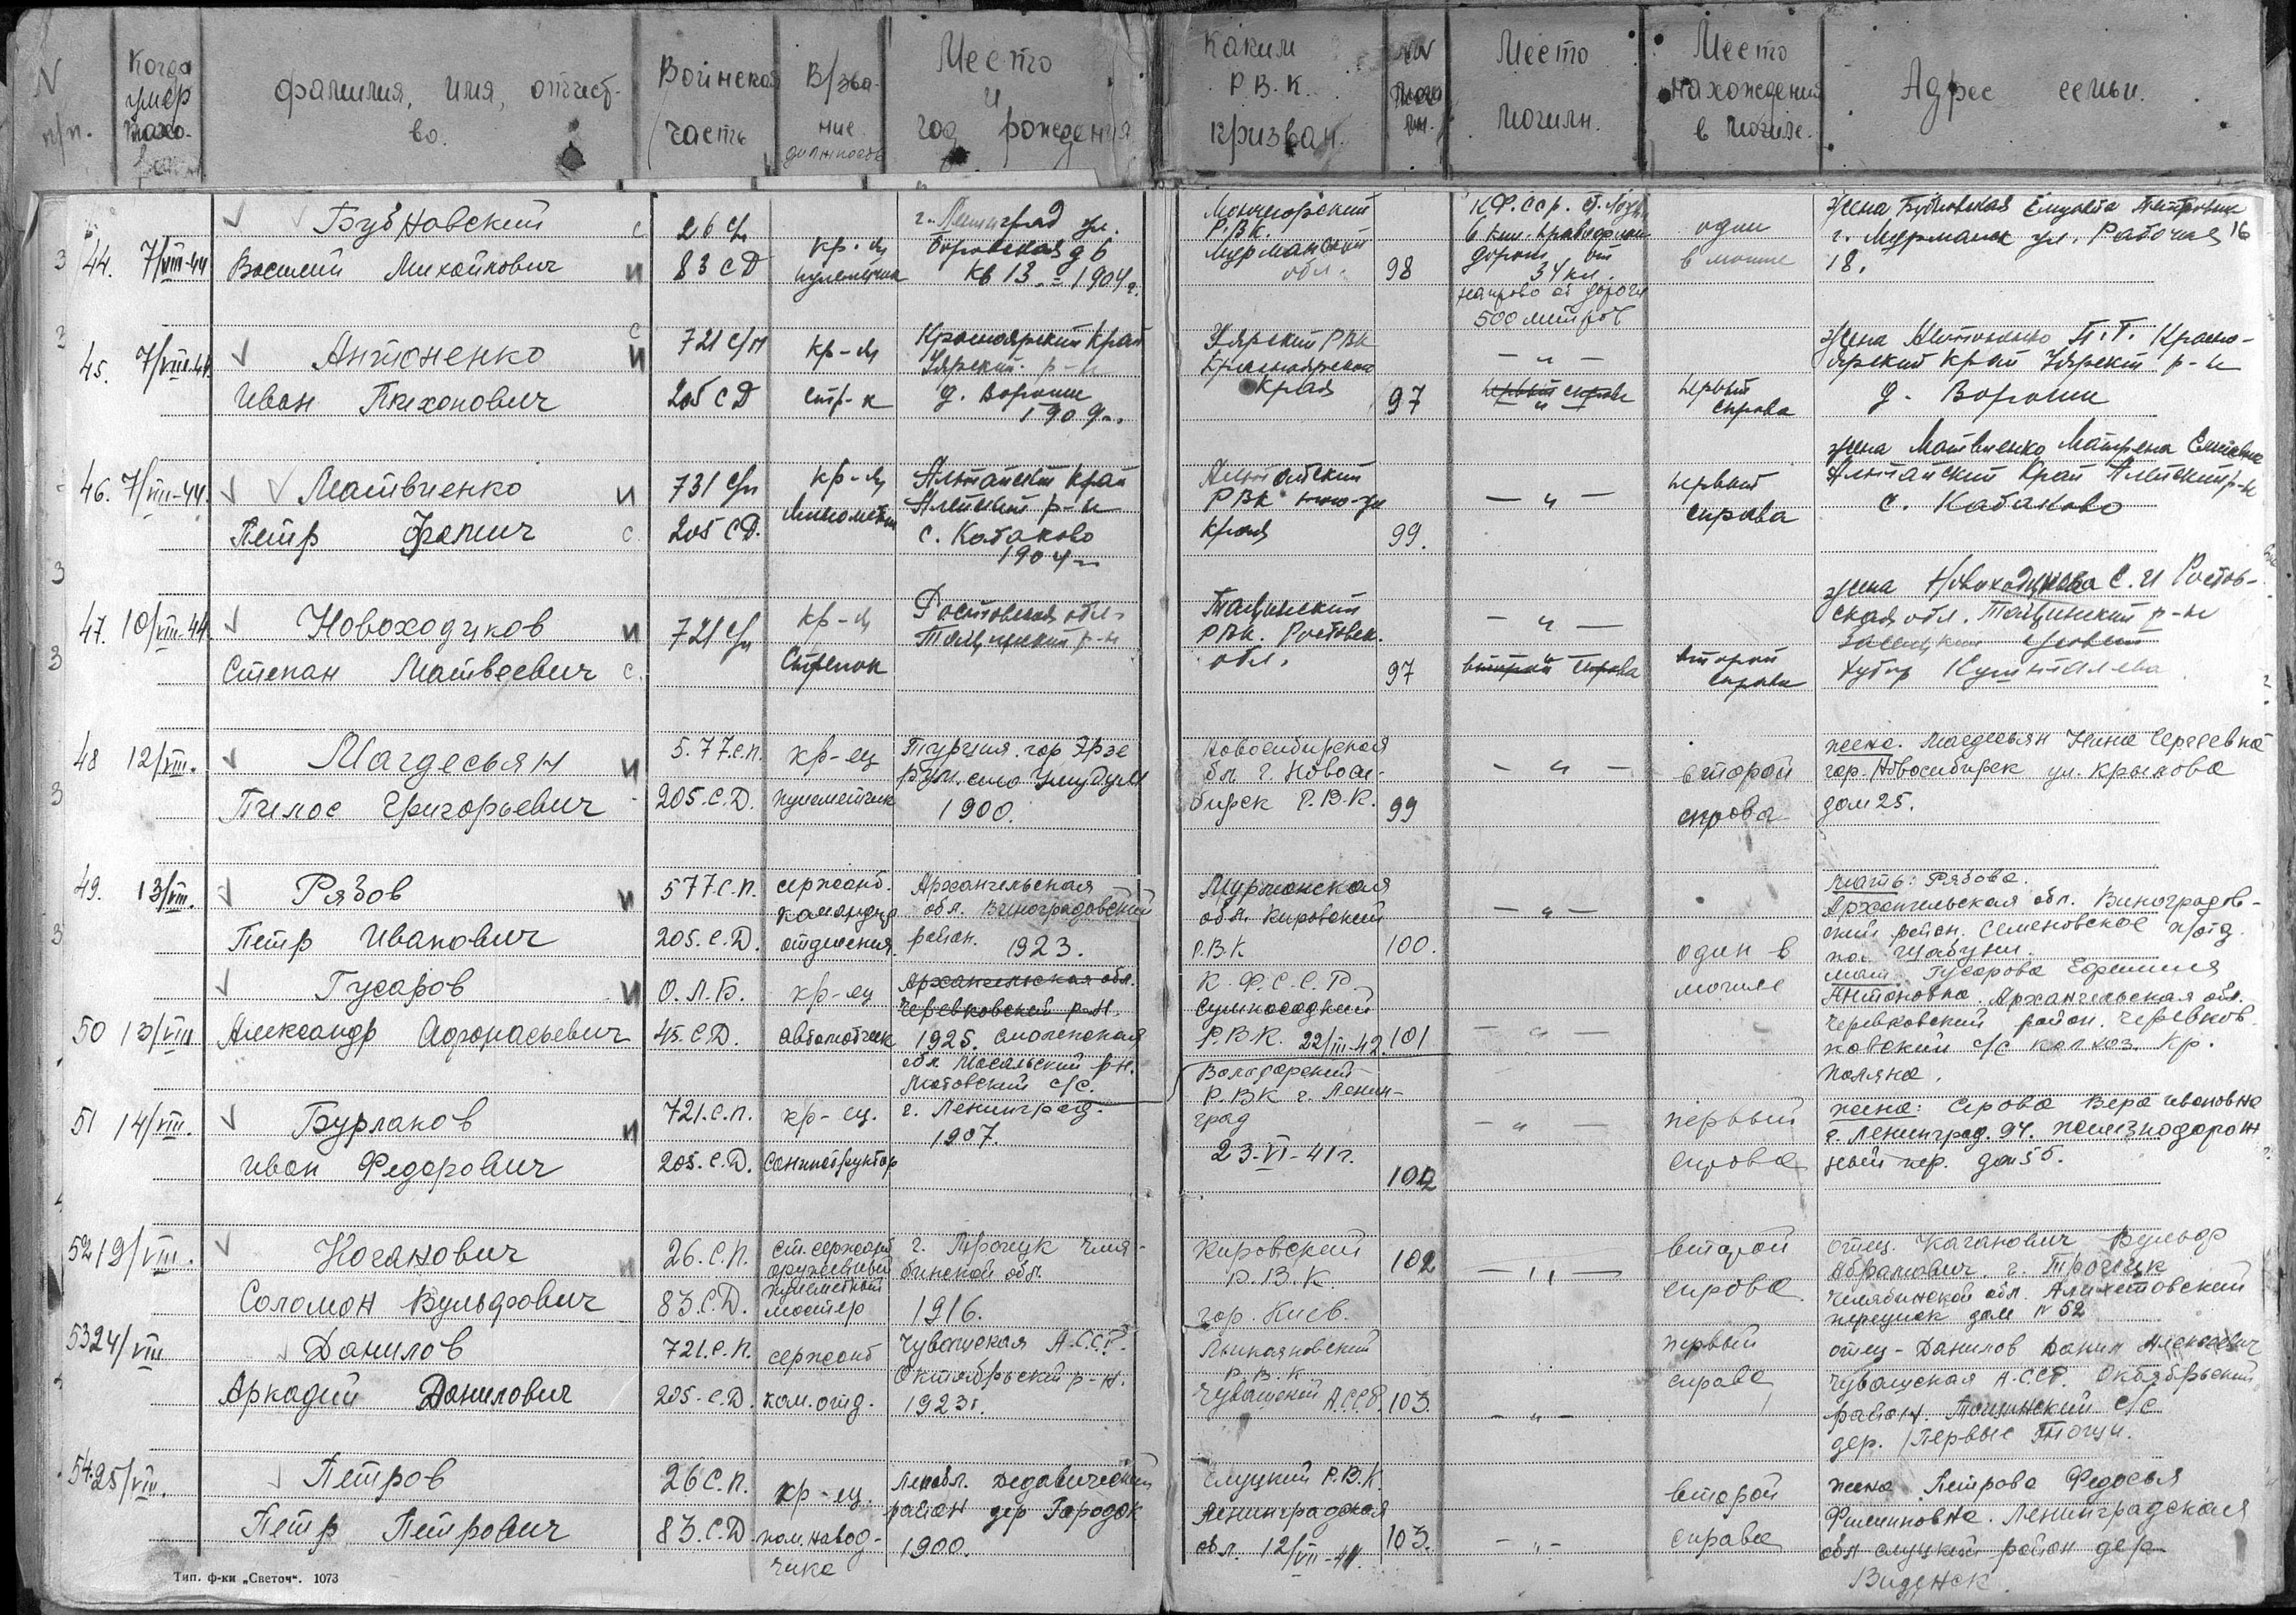 N п/п.
Когда умер похо-
фамилия, имя, отчест-во.
Воинская часть
В/зва-ние должность
Место и год рождения
Каким Р.В.К. призван.
NN могил.
Место могилы.
Место нахождения в могиле.
Адрес семьи.
44. 7/VIII-44
Бубновский
Василий Михайлович
26 сп
83 СД
кр-ец
пулеметчик
г. Ленинград ул.
Боровская д 6
кв 13. - 1904 г.
Мончегорский
Р.В.К.
Мурманской
обл.
98
К.Ф.ССР. п. Лоухи
6 км.
дороги от
34 км.
направо от дороги
500 метров
один
в могиле
жена Бубновская Елизавета Петровна
г. Мурманск ул. Рабочая 16
18.
45. 7/VIII-44
Антоненко
Иван Тихонович
721 с/п
205 СД
кр-ец
стр-к
Красноярский край
Уярский р-н
д. Ворошин
1909 г.
Уярский РВК
Красноярского
края
97
— " —
первый справа
— " —
первый
справа
жена Антоненко П.Т. Красно-
ярский край Уярский р-н
д. Ворошин
46. 7/VIII-44.
Матвиенко
Петр Фомич
731 с/п
205 СД.
кр-ец
минометчик
Алтайский край
Алейский р-н
с. Кабаково
1904 г.
Алтайский
РВК
края
99.
— " —
первый
справа
жена Матвиенко Матрена
Алтайский край Алейский р-н
с. Кабаково
47. 10/VIII-44.
Новоходцков
Степан Матвеевич
721 с/п
кр-ец
Стрелок
Ростовская обл-
Тацинский р-н
Тацинский
РВК. Ростовск.
обл.
97
— " —
второй справа
второй
справа
жена Новоходцкова С.И Ростов-
ская обл. Тацинский р-н
хутор
48 12/VIII.
Магдесьян
Пилос Григорьевич
5.77.с.п.
205.С.Д.
кр-ец
пулеметчик
Турция. гор Эрзе
рум. село
1900.
Новосибирская
бл. г. Новоси-
бирск Р.В.К.
99
— " —
второй
справа
жена. Магдесьян Нина Сергеевна
гор. Новосибирск ул. Крылова
дом 25.
49. 13/VIII.
Рябов
Петр Иванович
577 С.П.
205.С.Д.
сержант.
командир
отделения.
Архангельская
обл. Виноградовский
район. 1923.
Мурманская
обл. Кировский
Р.В.К
100.
— " —
один в
могиле
мать: Рябова.
Архангельская обл. Виноградов-
ский район. Семеновское п/отд.
пос. Шабуни.
50 13/VIII
Гусаров
Александр Афонасьевич
О.Л.Б.
45.С.Д.
кр-ец
автоматчик
Архангельская обл.
Черевковский р-н.
1925. Смоленская
обл. Мосальский р-н.
Мотовский с/с.
К.Ф.С.С.Р.
Сумпосадкий
Р.В.К. 22/III-42.
101
— " —
мать Гусарова Ефимия
Антоновна. Архангельская обл.
Черевковский район. Черевков
ковский с/с колхоз. Кр.
поляна.
51 14/VIII.
Бурлаков
Иван Федорович
721.с.п.
205.С.Д.
кр-ец.
санинструктор
г. Ленинград.
1907.
Володарский
Р.ВК г. Ленин-
град
23-VI-41 г.
102
— " —
первый
справа
жена: Серова Вера Ивановна
г. Ленинград. 94. железнодорож
ный пер. дом 55.
52 19/VIII.
Коганович
Соломон Вульфович
26.С.П.
83.С.Д.
ст. сержант
оружейный
пулеметный
мастер
г. Троицк Челя-
бинской обл.
1916.
Кировский
Р.В.К.
гор. Киев.
102
— " —
второй
справа
отец. Каганович Вульф
Абрамович. г. Троицк
Челябинской обл. Амихетовский
переулок дом N 52
53 24/VIII
Данилов
Аркадий Данилович
721.С.П.
205.С.Д.
сержант
ком. отд.
Чувашская А.ССР.
Октябрьский р-н.
1923 г.
Р.В.К.
Чувашский А.ССР.
103
— " —
первый
справа
отец - Данилов Данил Алексеевич
Чувашская А.ССР. Октябрьский
район. Тогинский с/с
дер. Первые Тогуи.
54. 25/VIII.
Петров
Петр Петрович
26 С.П.
83.С.Д.
кр-ец.
пом. навод-
чика
Лен обл. Дедовичский
район дер Городок
1900.
Слуцкий Р.В.К.
Ленинградская
обл. 12/VII-41.
103.
— " —
второй
справа
жена Петрова Федосья
Филипповна. Ленинградская
обл слуцкий район дер
Виденск
Тип. ф-ки „Светоч“. 1073